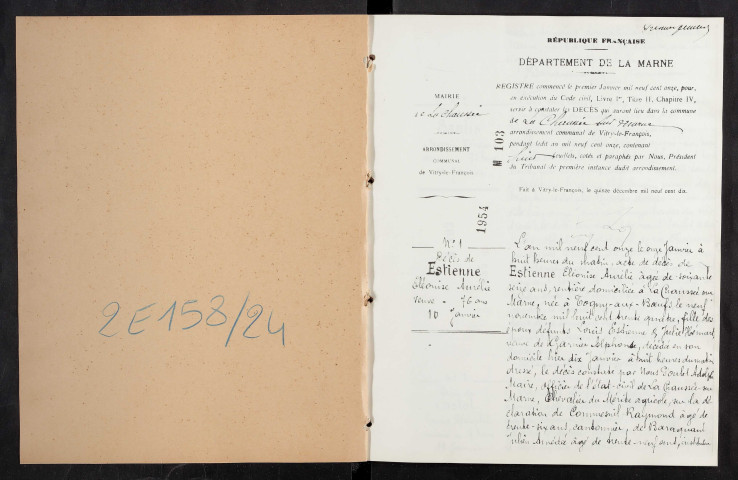 2E158/24
RÉPUBLIQUE FRANÇAISE
DÉPARTEMENT DE LA MARNE
MAIRIE
de La Chaussée
ARRONDISSEMENT
COMMUNAL
de Vitry-le-François
REGISTRE commencé le premier Janvier mil neuf cent onze, pour,
en exécution du Code civil, Livre Ier, Titre II, Chapitre IV,
servir à constater les DÉCÈS qui auront lieu dans la commune
de La Chaussée sur Marne
arrondissement communal de Vitry-le-François,
pendant ledit an mil neuf cent onze, contenant
feuillets, cotés et paraphés par Nous, Président
du Tribunal de première instance dudit arrondissement.
Fait à Vitry-le-François, le quinze décembre mil neuf cent dix.
M 103
1954
No 1
Décès de
Estienne
Eléonise Aurélie
veuve - 76 ans
10 Janvier
L'an mil neuf cent onze le onze Janvier à
huit heures du matin, acte de décès de
Estienne Eléonise Aurélie âgée de soixante
seize ans, rentière domiciliée à La Chaussée-sur
Marne, née à Togny-aux-Bœufs le neuf
novembre mil huit cent trente quatre, fille des
époux défunts Louis Estienne & Julie
veuve de Garnier Alphonse, décédée en son
domicile hier dix Janvier à huit heures du matin
dressé, le décès constaté par Nous Adolphe
Maire, officier de l'état-civil de La Chaussée-sur
Marne, Chevalier du Mérite agricole, sur la dé
claration de Commesnil Raymond âgé de
trente-six ans, cantonnier, de
Julien Amédée âgé de trente-neuf ans, instituteur